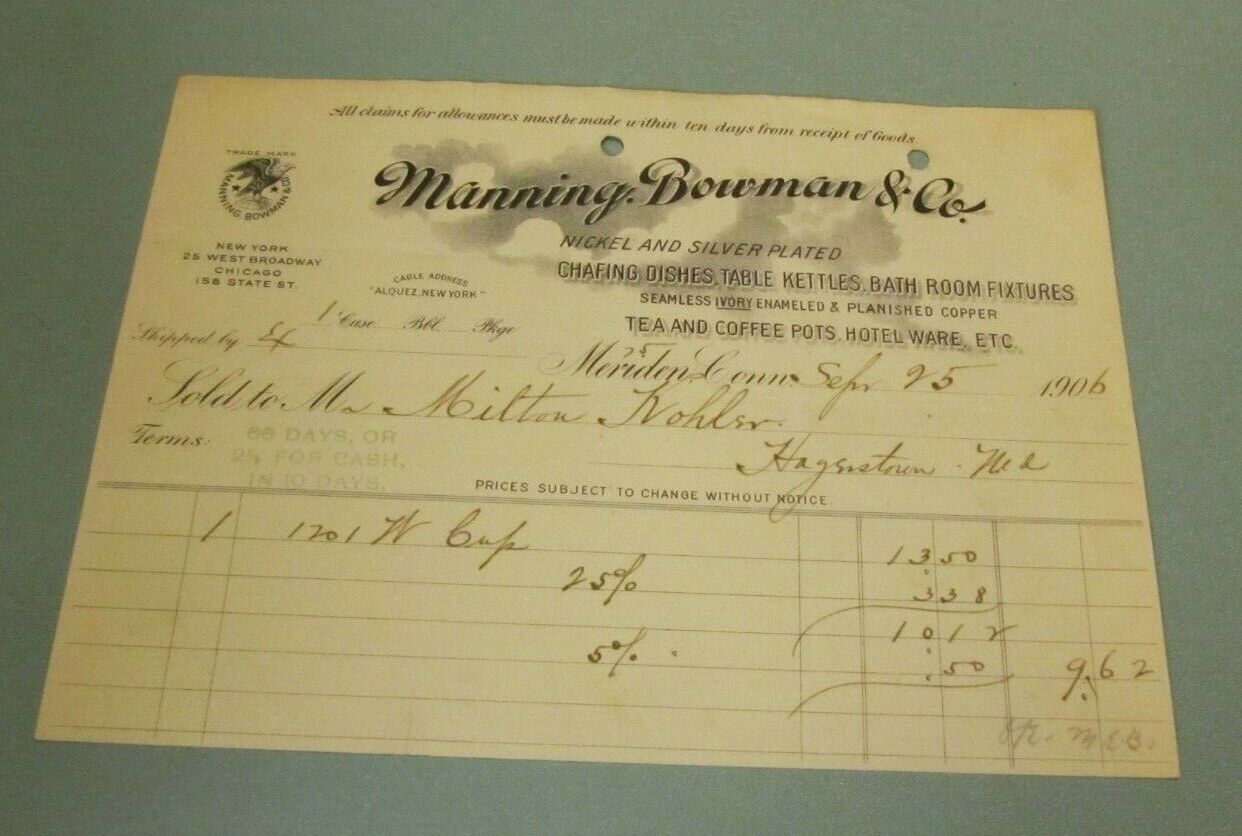 All claims for allowances must be made within ten days from receipt of Goods
TRADE MARK
MANNING, BOWMAN & CO.
Manning, Bowman & Co.
NEW YORK
25 WEST BROADWAY
CHICAGO
158 STATE ST.
CABLE ADDRESS
"ALQUEZ, NEW YORK"
NICKEL AND SILVER PLATED
CHAFING DISHES, TABLE KETTLES, BATH ROOM FIXTURES
SEAMLESS IVORY ENAMELED & PLANISHED COPPER
TEA AND COFFEE POTS, HOTEL WARE, ETC.
1 Case Bbl. Pkge
Shipped by Ex
25
Meriden, Conn. Sep 25 1906
Sold to Mr Milton Kohler.
Hagerstown Md
Terms: 60 DAYS, OR
2% FOR CASH,
IN 10 DAYS.
PRICES SUBJECT TO CHANGE WITHOUT NOTICE.
1 1201 W Cup 13.50
25% 3.38
10.12
5% .50 9.62